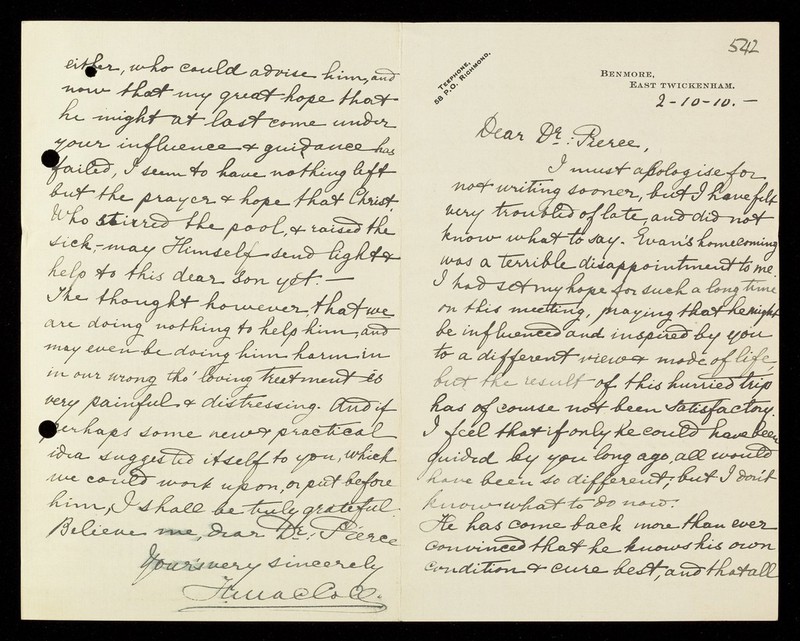 542
TELEPHONE,
58 P.O. RICHMOND.
BENMORE,
EAST TWICKENHAM.
2-10-10.-
Dear Dr: Pierce,
I must apologise for
not writing sooner, but I have felt
very troubled of late, and did not
know what to say. Evan's homecoming
was a terrible disappointment to me.
I had set my hope for such a long time
on this meeting, praying that he might
be influenced and inspired by you
to a different view & mode of life,
but the result of this hurried trip
has of course not been satisfactory.
I feel that if only he could have been
guided by you long ago, all would
have been so different; but I don't
know what to do now.
He has come back more than ever
convinced that he knows his own
condition & cure best, and that all
either, who could advise him, and
now that my great hope that
he might at last come under
your influence & guidance has
failed, I seem to have nothing left
but the prayer & hope that Christ,
Who stirred the pool, & raised the
sick,-may Himself send light &
help to this dear son yet. -
The thought however, that we
are doing nothing to help him, and
may even be doing him harm in
in our wrong tho' loving treatment is
very painful & distressing. And if
perhaps some new & practical
idea suggested itself to you, which
we could work upon, or put before
him, I shall be truly grateful.
Believe me, dear Dr: Pierce
Yours very sincerely